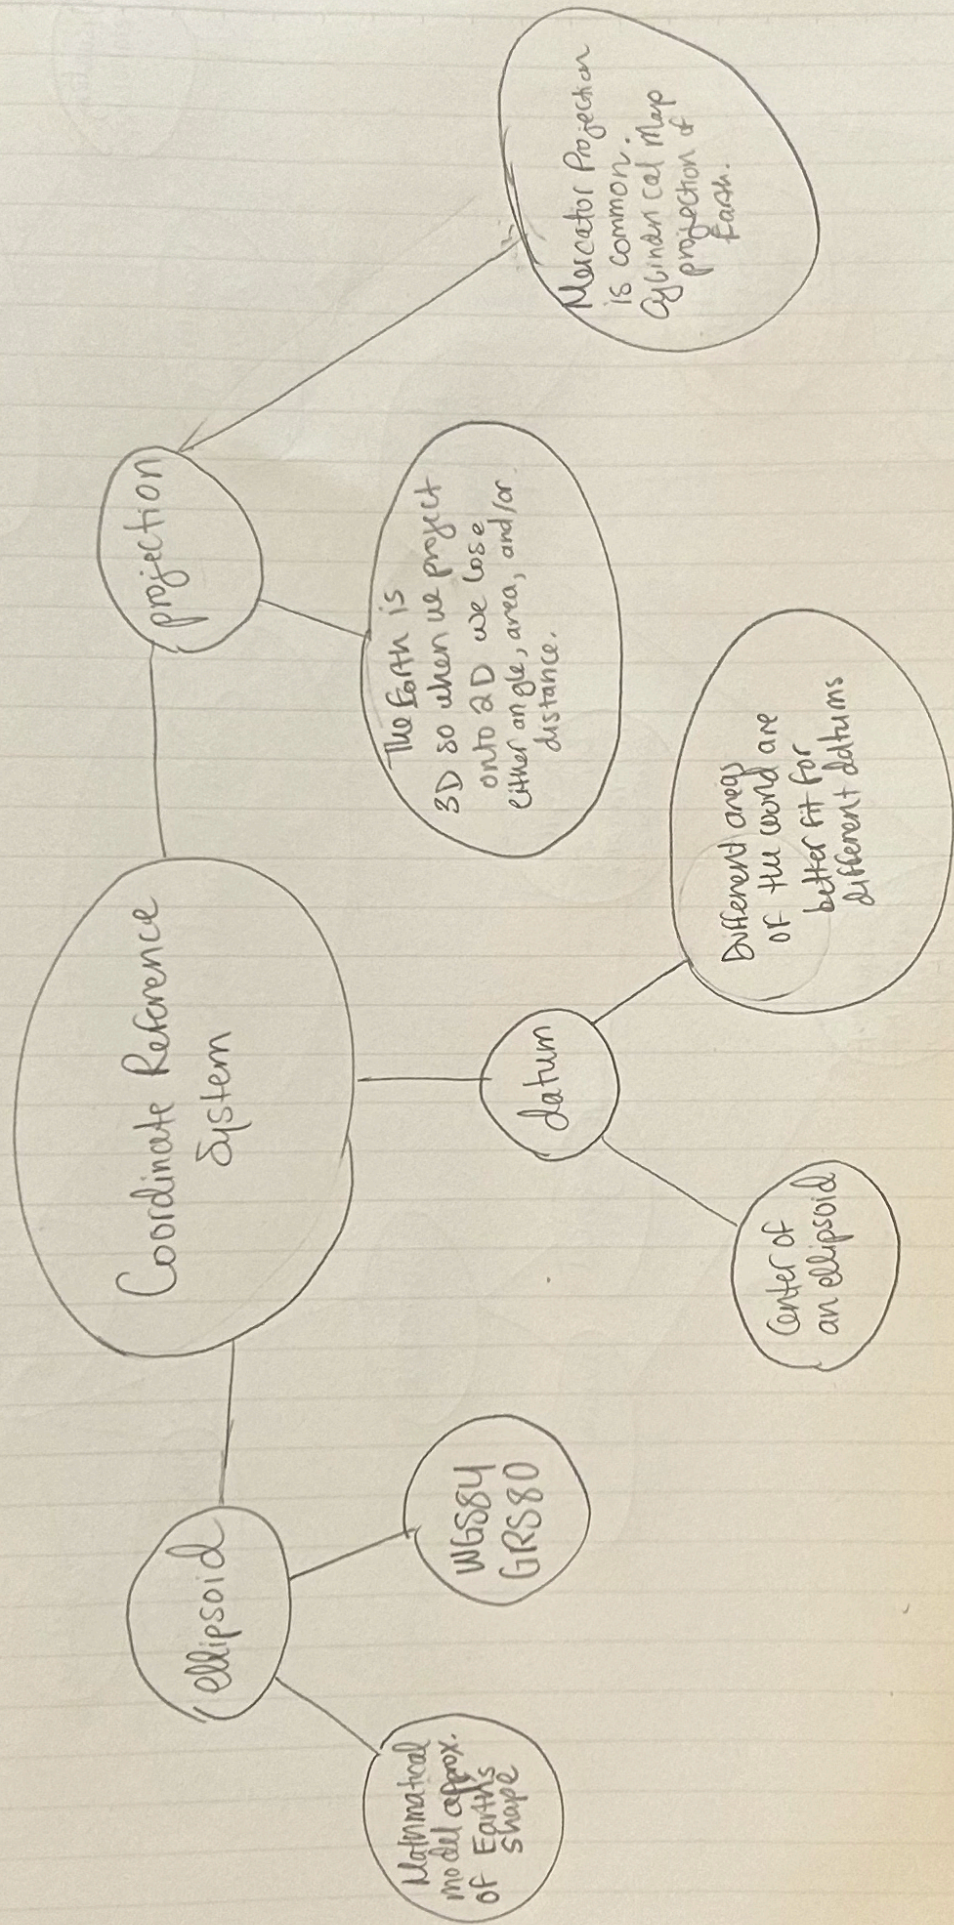 Coordinate Reference
System
ellipsoid
Mathmatical
model approx.
of Earth's
shape
WGS84
GRS80
datum
Center of
an ellipsoid
Different areas
of the world are
better fit for
different datums
projection
The Earth is
3D so when we project
onto 2D we lose
either angle, area, and/or
distance.
Mercator Projection
is common.
Cylindrical Map
projection of
Earth.